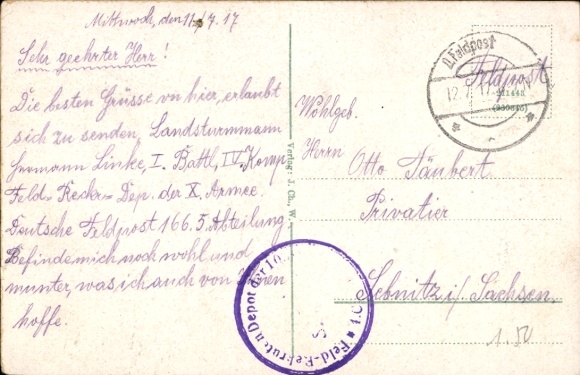 Mittwoch, den 11./7. 17
Sehr geehrter Herr!
Die besten Grüsse von hier, erlaubt
sich zu senden, Landsturmmann
Hermann Linke, I. Battl, IV. Komp
Feld-Rekr-Dep. der X. Armee.
Deutsche Feldpost 166. 5. Abteilung
Befinde mich noch wohl und
munter, was ich auch von Ihnen
hoffe.
Verlag: J. Ch., W.
D. Feldpost
12. 7. 17
Feldpost
Wohlgeb.
Herrn Otto Täubert
Privatier
Sebnitz i/ Sachsen.
Feld-Rekruten Depot der 10.
1.50